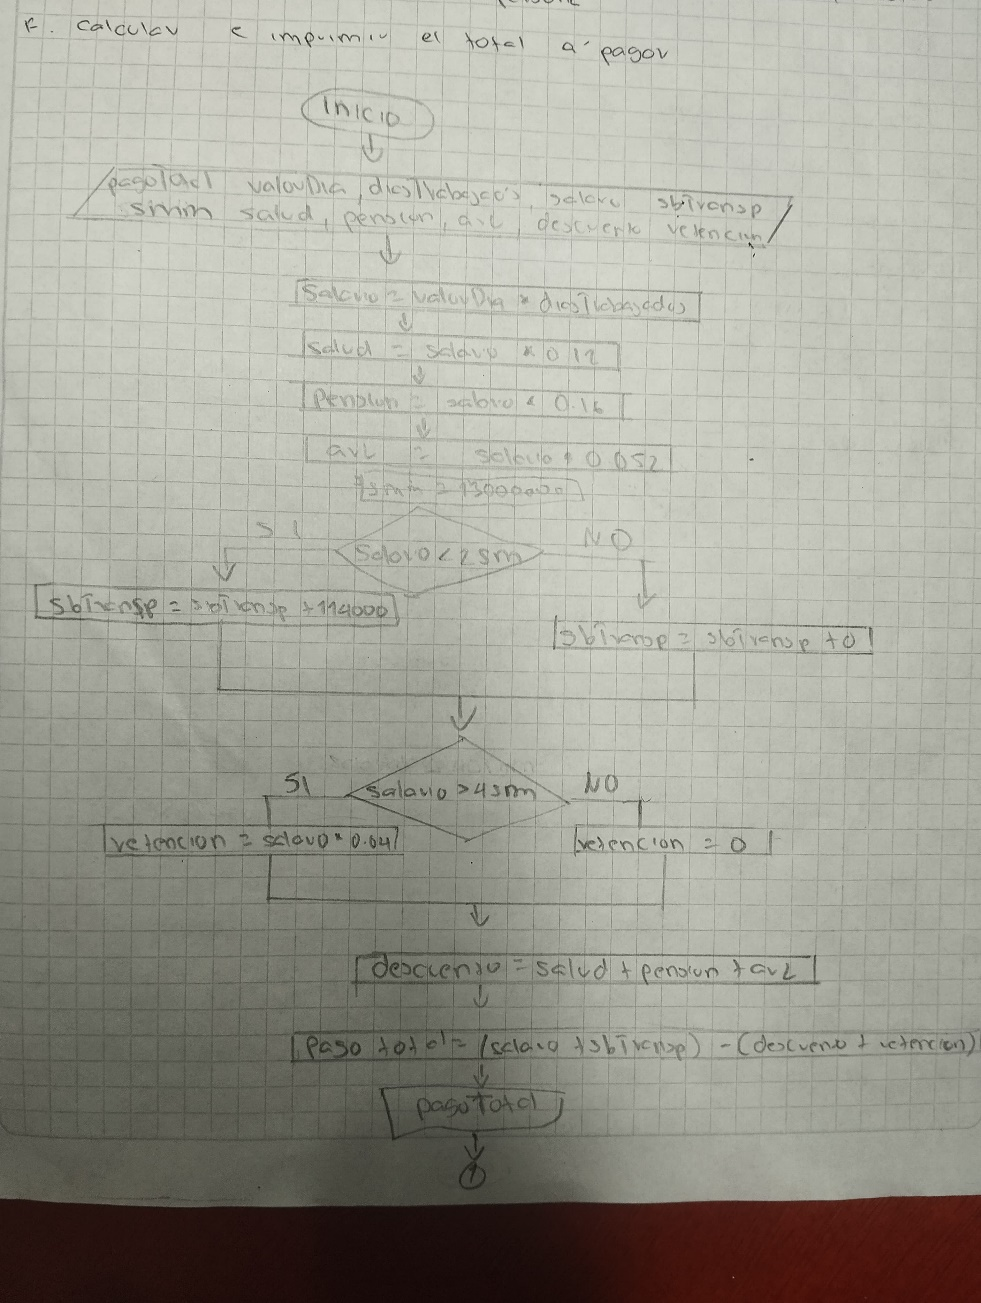 F. calcular e imprimir el total a pagar
INICIO
pagoTotal valorDia, diasTrabajados, salario sbTransp
smm salud, pension, arl, descuento retencion
salario = valorDia * diasTrabajados
salud = salario * 0.12
Pension = salario * 0.16
arl = salario * 0.052
salario < 2 sm
SI
NO
sbTransp = sbTransp + 114000
sbTransp = sbTransp + 0
salario > 4 sm
SI
NO
retencion = salario * 0.04
retencion = 0
descuento = salud + pension + arl
Pago total = (salario + sbTransp) - (descuento + retencion)
pagoTotal
1